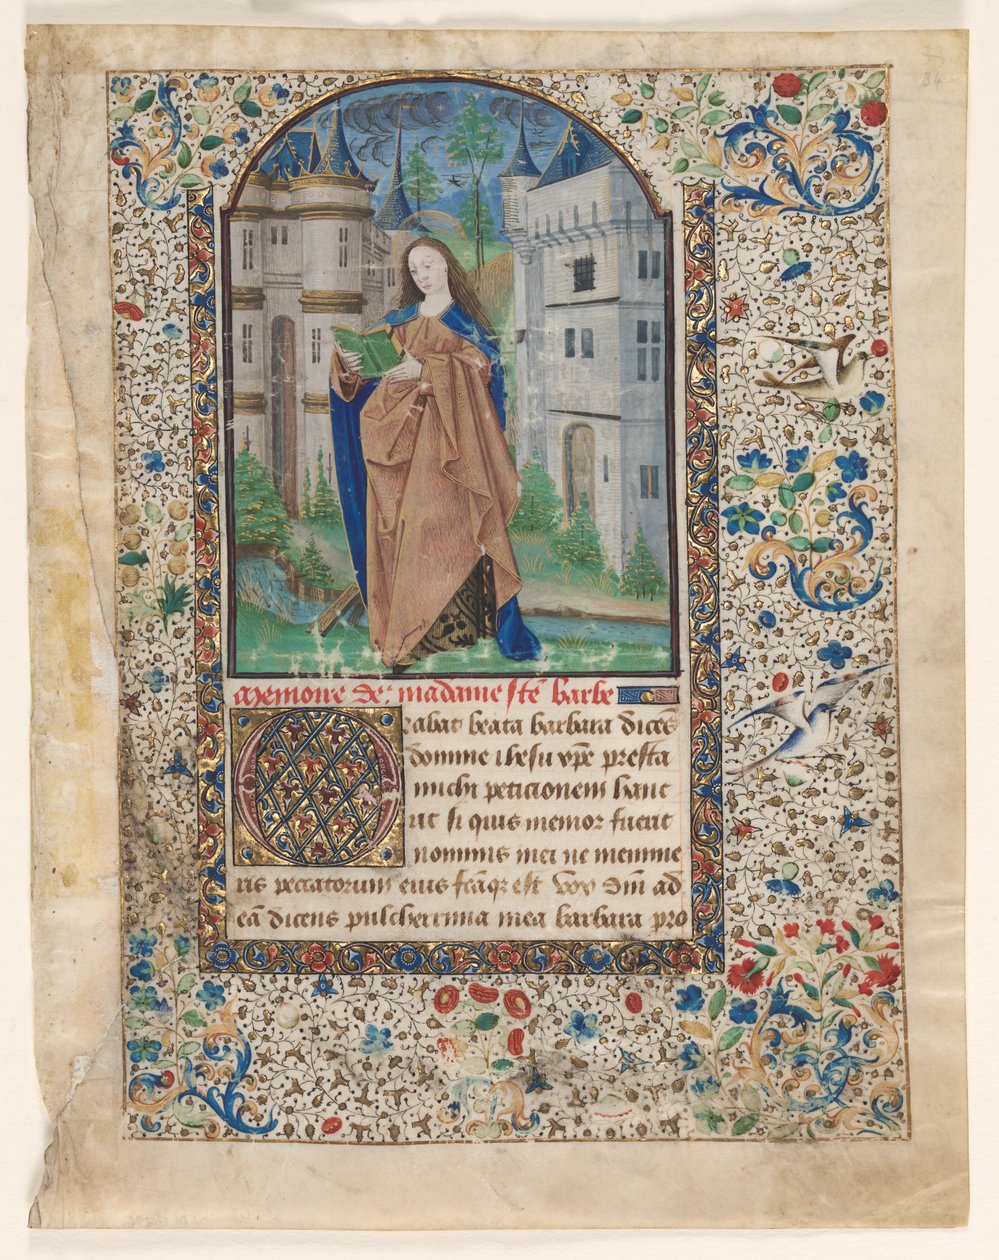 Memoire de madame ste barbe
Orabat beata barbara dicens
domine ihesu xpe presta
michi peticionem hanc
ut si quis memor fuerit
nominis mei ne memine
ris peccatorum eius vox dm ad
eā dicens pulcherrima mea barbara pro